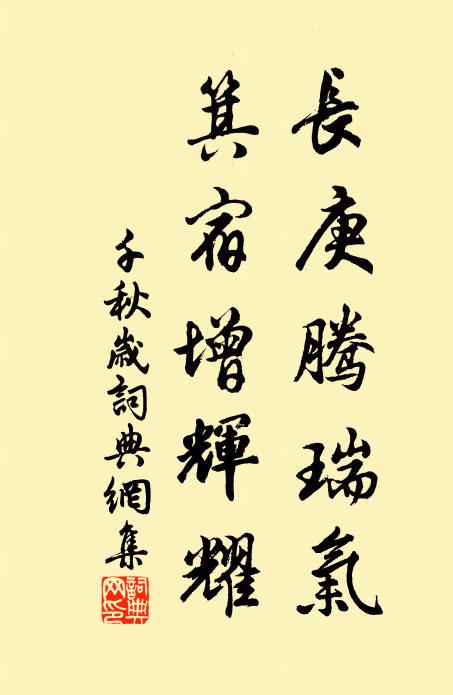 長庚腾瑞氣
箕宿增輝耀
千秋歲詞典網集
詞典网印